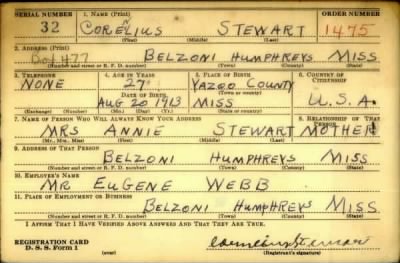 SERIAL NUMBER 1. NAME (Print) ORDER NUMBER
32 CORELIUS STEWART 1475
(First) (Middle) (Last)
2. ADDRESS (Print)
Box 477 BELZONI HUMPHREYS MISS
(Number and street or R. F. D. number) (Town) (County) (State)
3. TELEPHONE 4. AGE IN YEARS 5. PLACE OF BIRTH 6. COUNTRY OF CITIZENSHIP
NONE 27 YAZOO COUNTY
DATE OF BIRTH (Town or county)
AUG 20 1913 MISS U.S.A.
(Exchange) (Number) (Mo.) (Day) (Yr.) (State or country)
7. NAME OF PERSON WHO WILL ALWAYS KNOW YOUR ADDRESS 8. RELATIONSHIP OF THAT PERSON
MRS ANNIE STEWART MOTHER
(Mr., Mrs., Miss) (First) (Middle) (Last)
9. ADDRESS OF THAT PERSON
BELZONI HUMPHREYS MISS
(Number and street or R. F. D. number) (Town) (County) (State)
10. EMPLOYER'S NAME
MR EUGENE WEBB
11. PLACE OF EMPLOYMENT OR BUSINESS
BELZONI HUMPHREYS MISS
(Number and street or R. F. D. number) (Town) (County) (State)
I AFFIRM THAT I HAVE VERIFIED ABOVE ANSWERS AND THAT THEY ARE TRUE.
REGISTRATION CARD
D. S. S. Form 1 (over) (Registrant's signature)